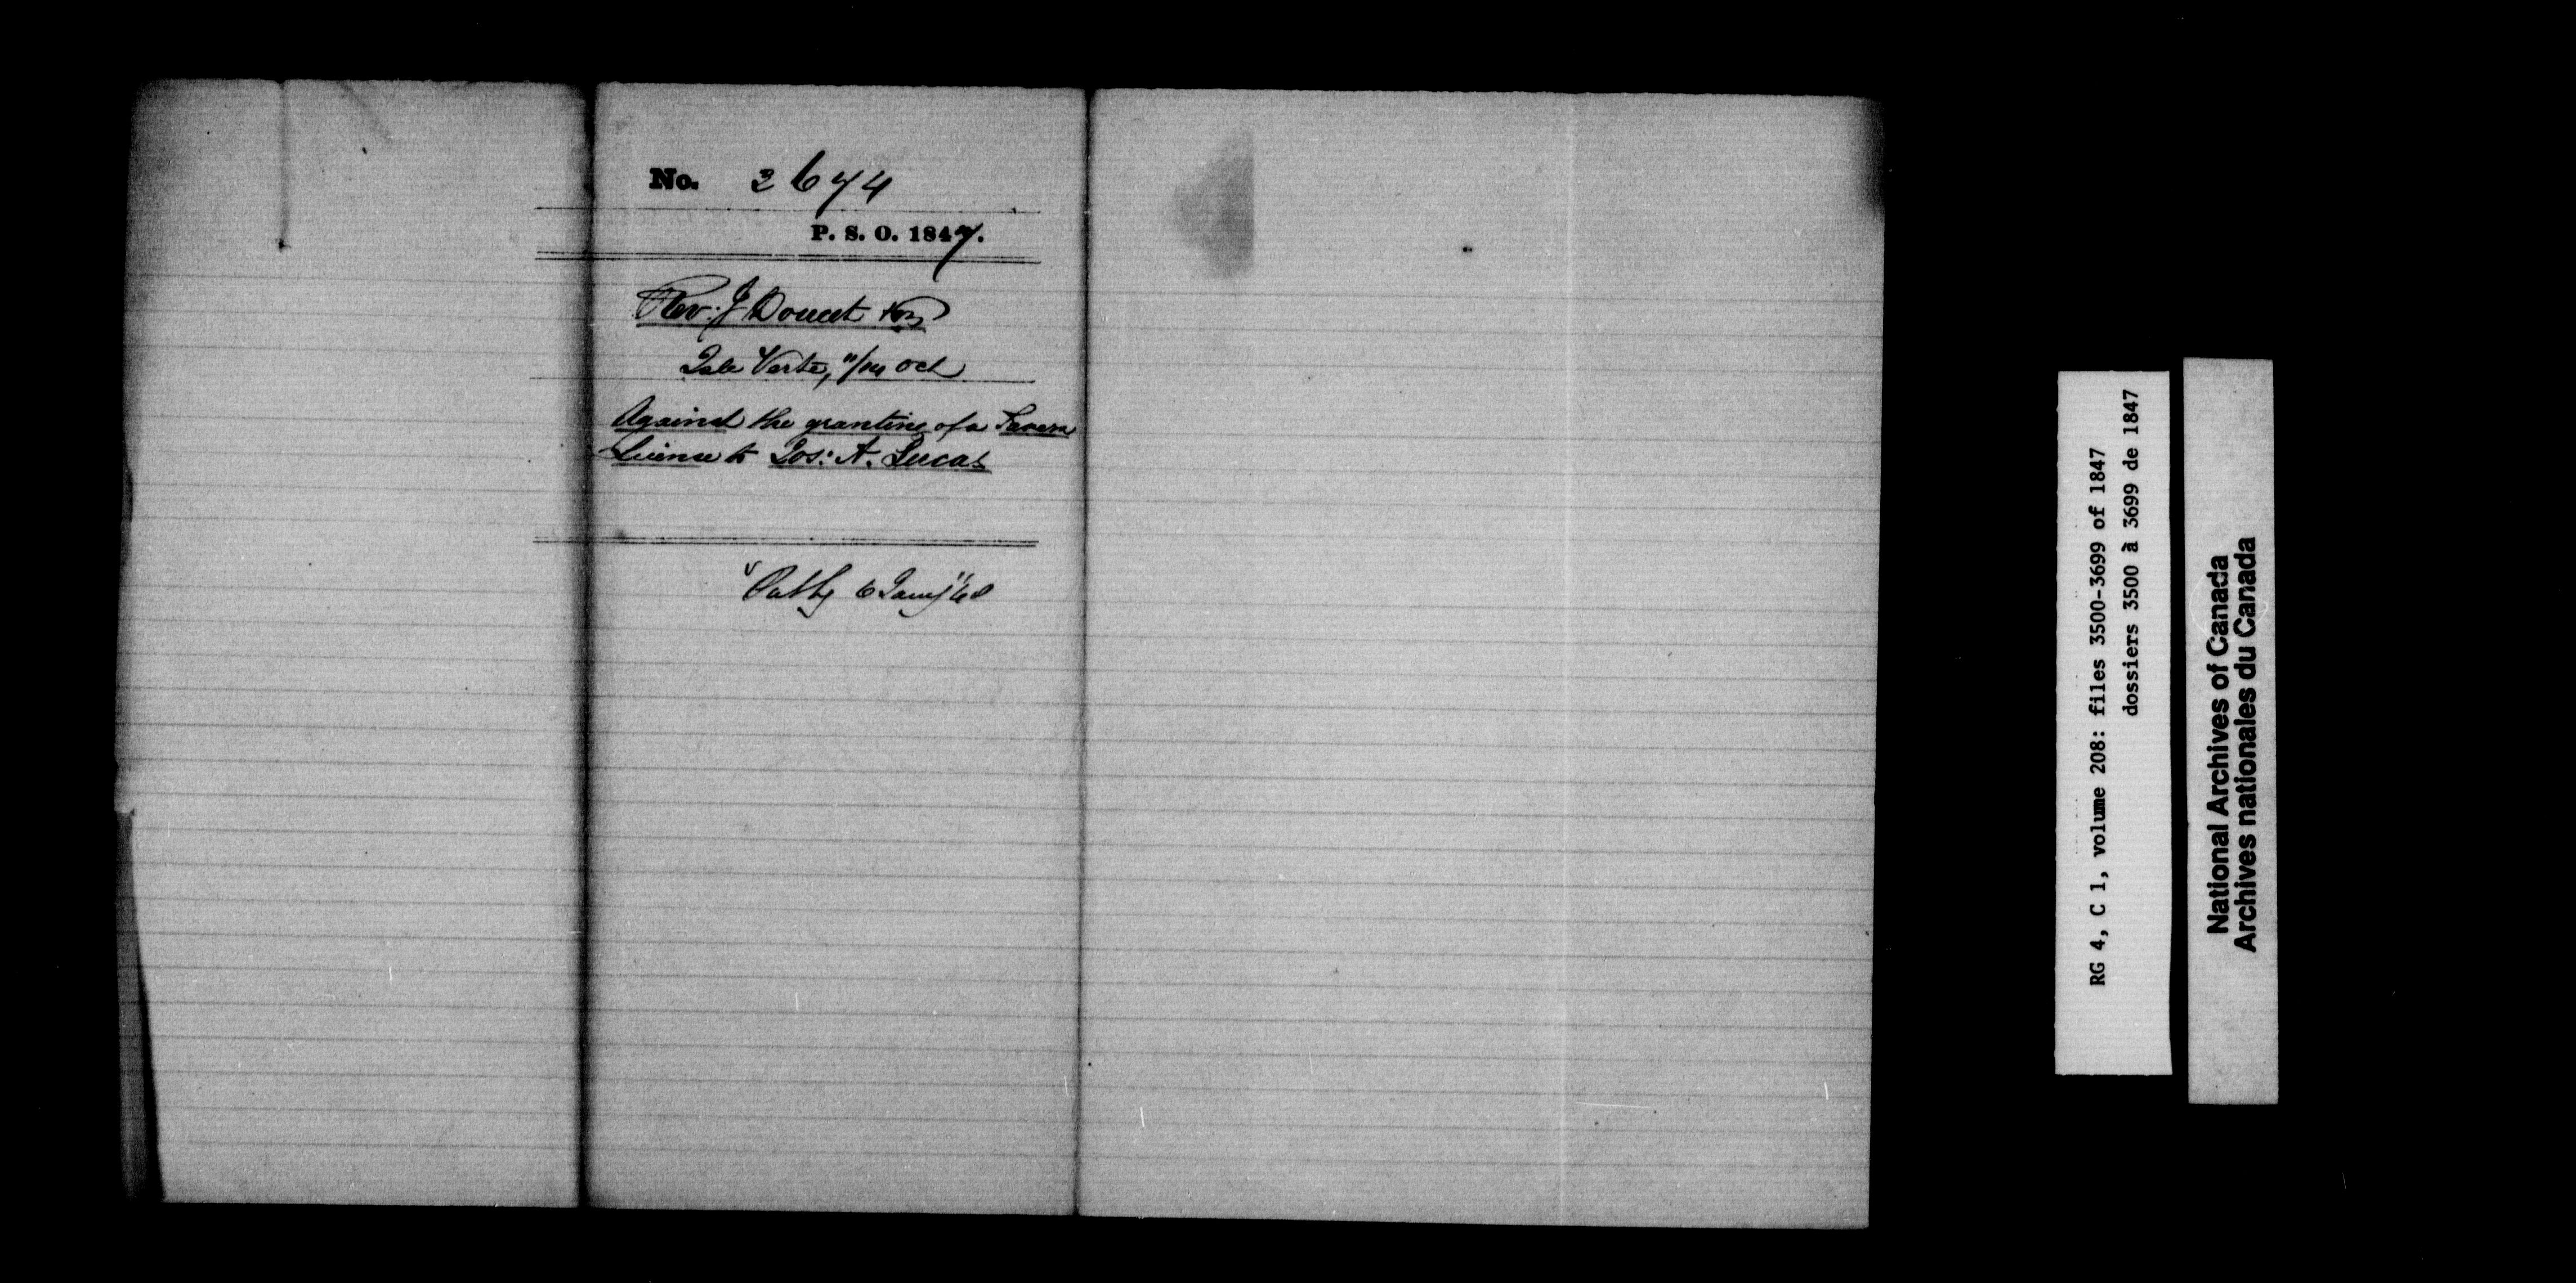 No. 3674
P. S. O. 1847.
Rev. J Doucet &
Isle Verte, 11/14 Oct
Against the granting of a Tavern
License to Jos: A. Lucas
6 Jany
RG 4, C 1, volume 208: files 3500-3699 of 1847
dossiers 3500 à 3699 de 1847
National Archives of Canada
Archives nationales du Canada